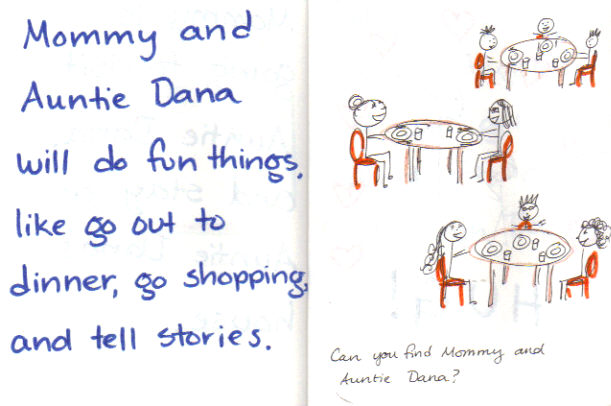 Mommy and
Auntie Dana
will do fun things,
like go out to
dinner, go shopping,
and tell stories.
Can you find Mommy and
Auntie Dana?